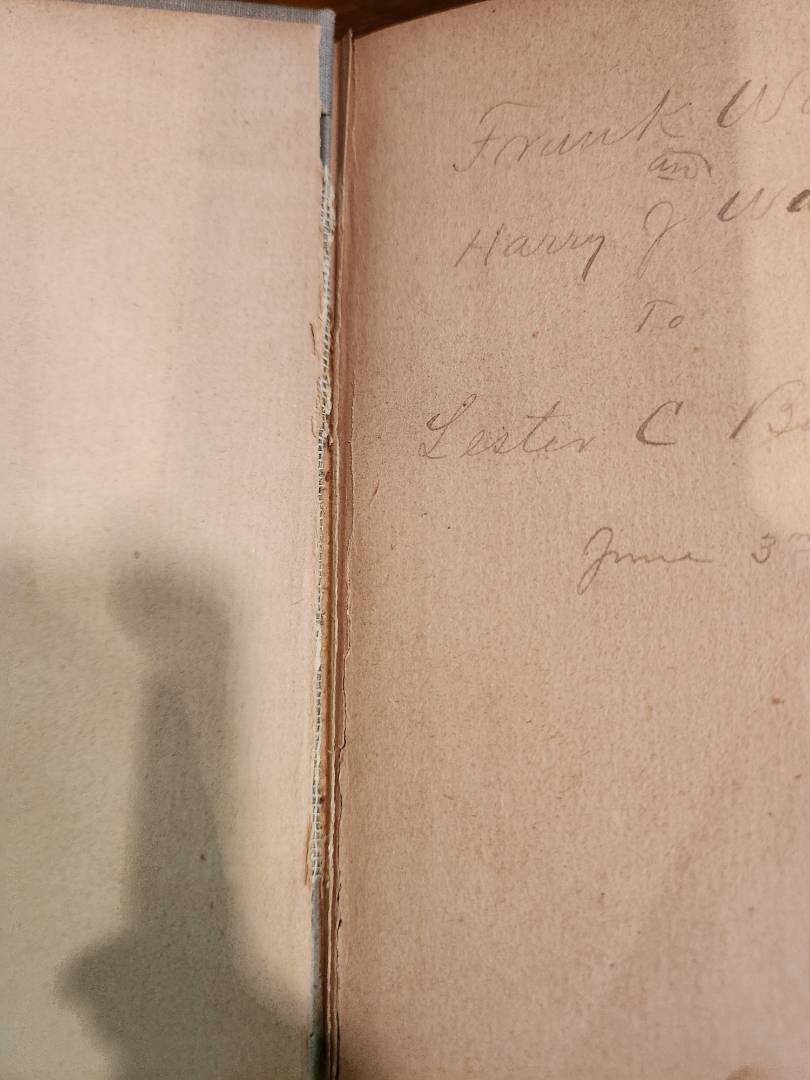 Frank W
and
Harry J Wa
To
Lester C B
June 3